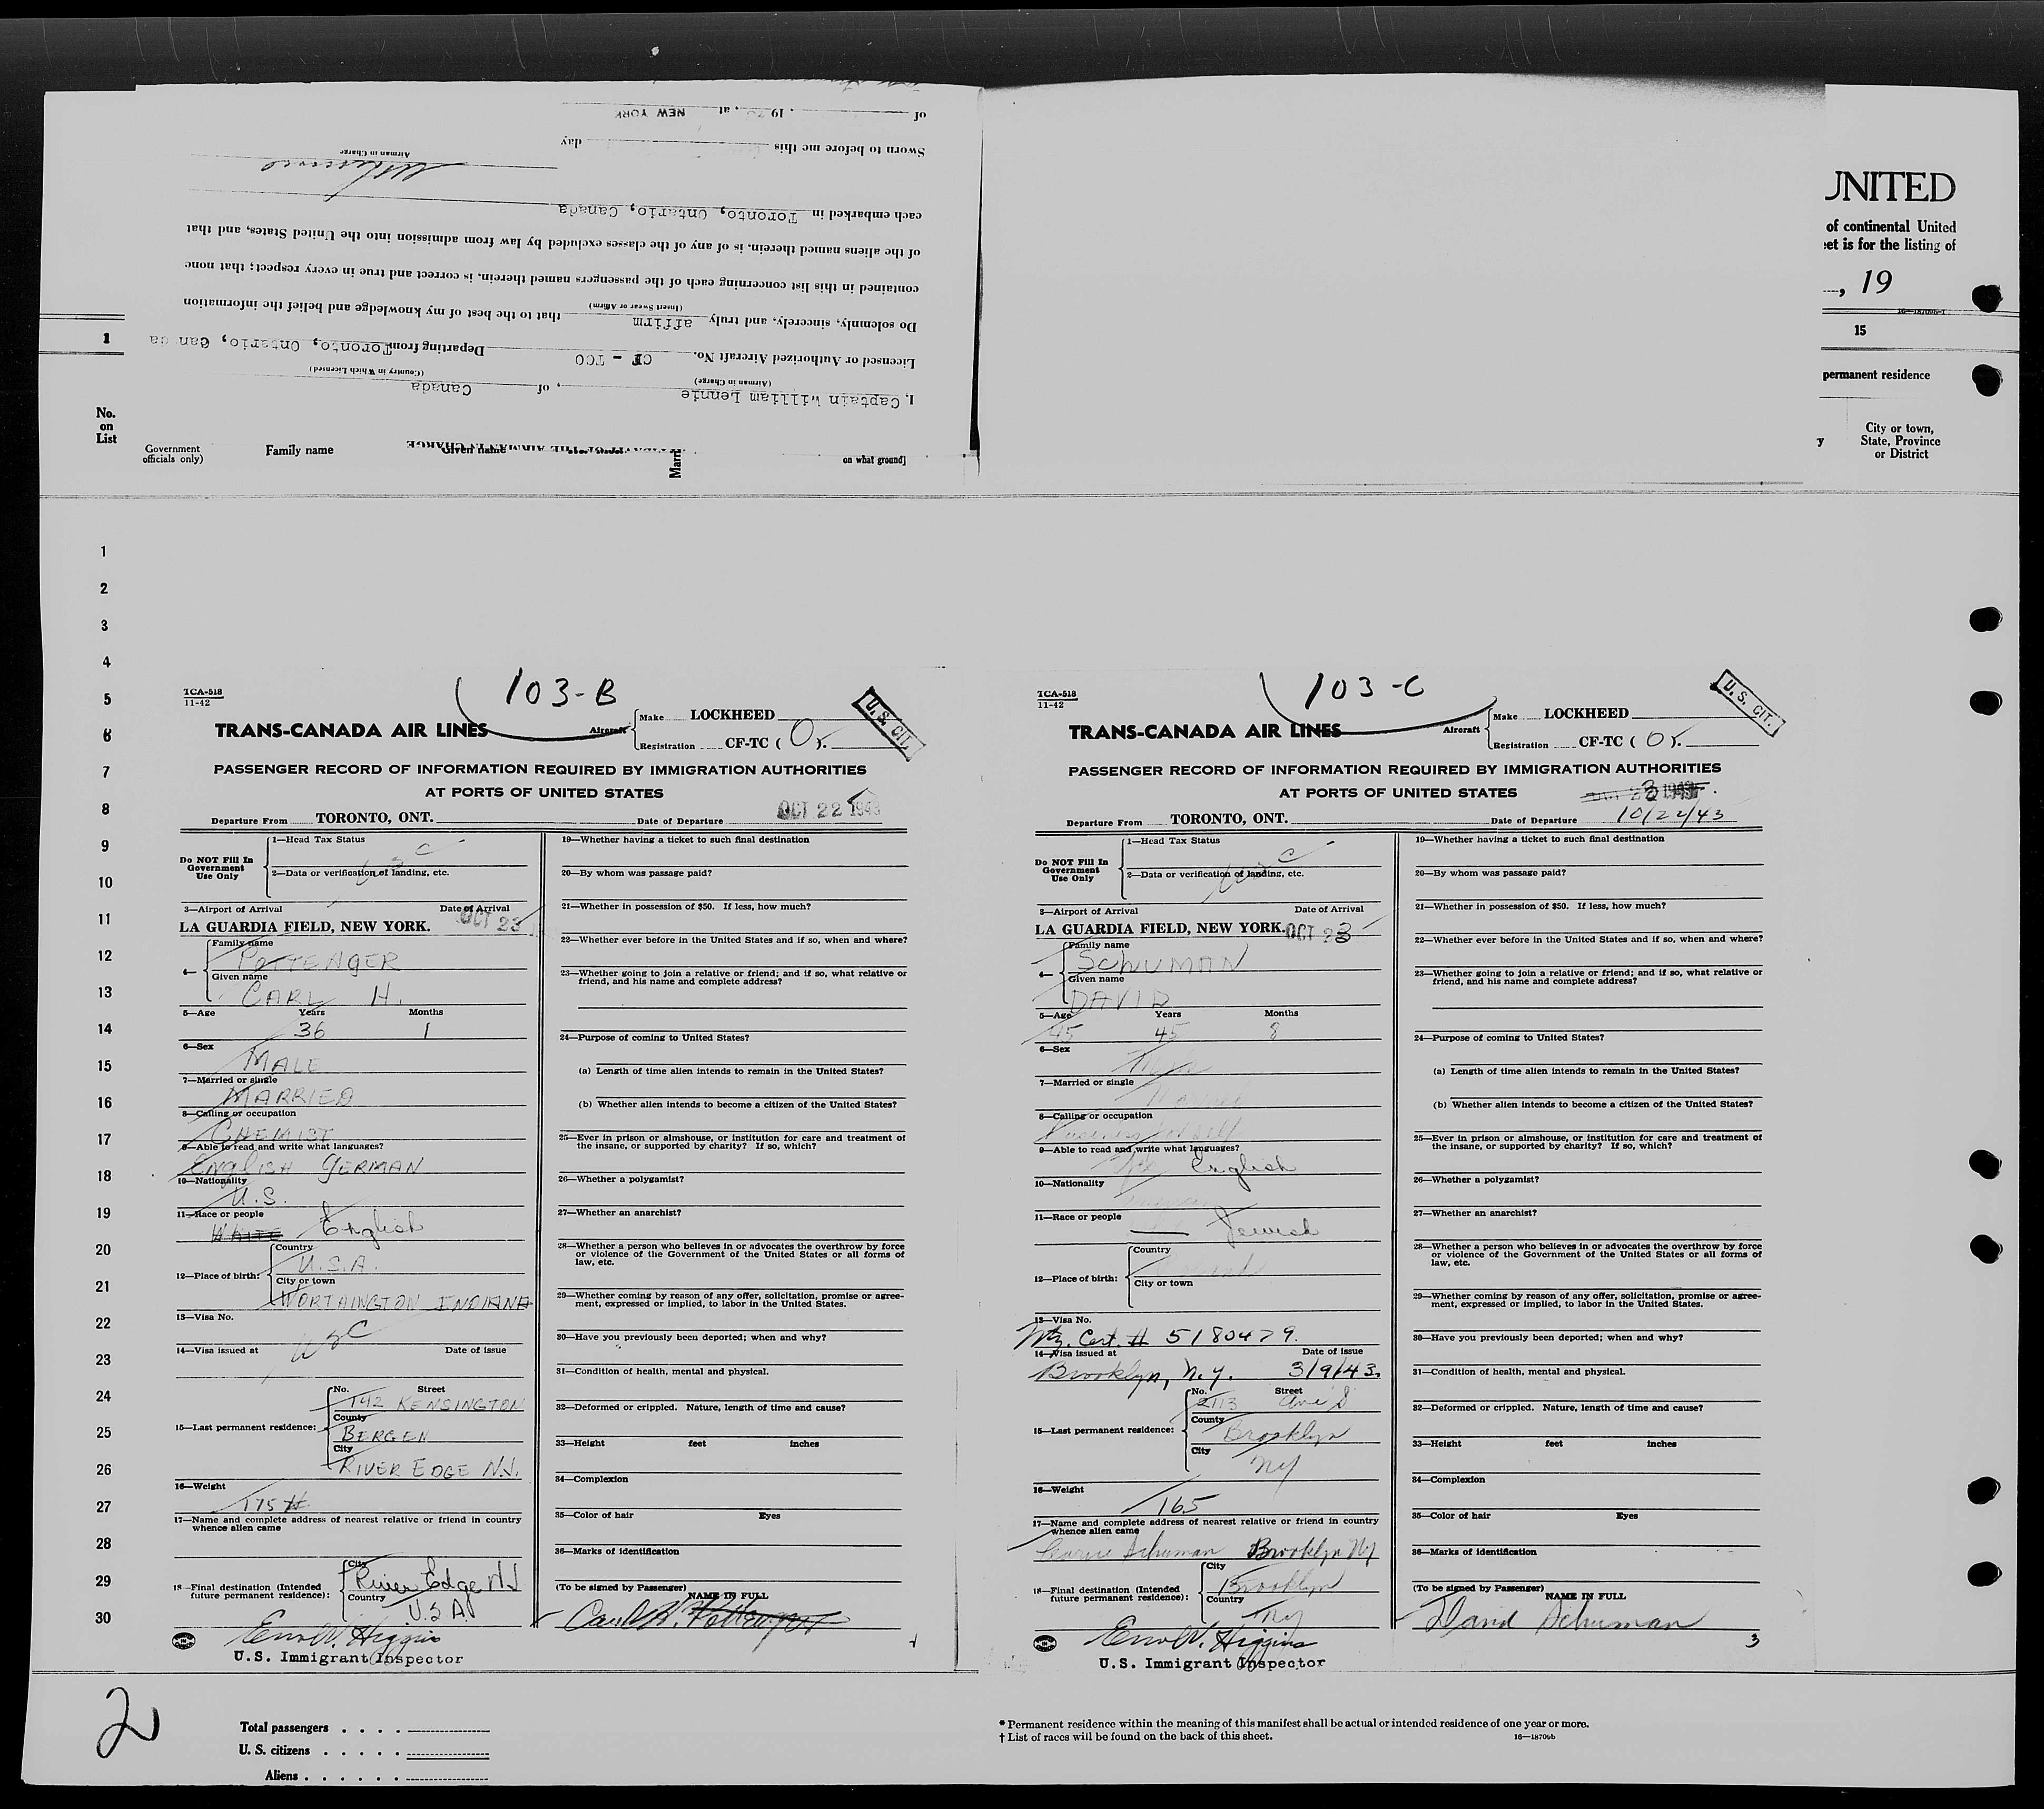 of , 19 , at NEW YORK
Sworn to before me this day
Airman in Charge
each embarked in Toronto, Ontario, Canada
of the aliens named therein, is of any of the classes excluded by law from admission into the United States, and that
contained in this list concerning each of the passengers named therein, is correct and true in every respect; that none
(Insert Swear or Affirm)
Do solemnly, sincerely, and truly affirm that to the best of my knowledge and belief the information
Licensed or Authorized Aircraft No. CF - TCO Departing from Toronto, Ontario, Canada
(Airman in Charge) (Country in Which Licensed)
I, Captain William Lennie, of Canada
UNITED
of continental United
et is for the listing of
, 19
15
permanent residence
City or town,
State, Province
or District
1
No.
on
List
Government
officials only)
Family name
Given name
on what ground]
1
2
3
4
5
6
7
8
9
10
11
12
13
14
15
16
17
18
19
20
21
22
23
24
25
26
27
28
29
30
103-B
TCA-518
11-42
U.S. CIT.
TRANS-CANADA AIR LINES
Aircraft
Make LOCKHEED
Registration CF-TC (O).
PASSENGER RECORD OF INFORMATION REQUIRED BY IMMIGRATION AUTHORITIES
AT PORTS OF UNITED STATES
OCT 22 1943
Departure From TORONTO, ONT. Date of Departure
Do NOT Fill In
Government
Use Only
1—Head Tax Status
USC
2—Data or verification of landing, etc.
3—Airport of Arrival Date of Arrival
LA GUARDIA FIELD, NEW YORK. OCT 23
4—
Family name
POTTENGER
Given name
CARL H.
5—Age Years Months
36 1
6—Sex
MALE
7—Married or single
MARRIED
8—Calling or occupation
CHEMIST
9—Able to read and write what languages?
ENGLISH GERMAN
10—Nationality
U.S.
11—Race or people
WHITE English
12—Place of birth:
Country
U.S.A.
City or town
WORTHINGTON INDIANA
13—Visa No.
USC
14—Visa issued at Date of issue
15—Last permanent residence:
No. Street
142 KENSINGTON
County
BERGEN
City
RIVER EDGE N.J.
16—Weight
175 #
17—Name and complete address of nearest relative or friend in country
whence alien came
18—Final destination (Intended
future permanent residence):
City
River Edge NJ
Country
U.S.A.
Erro W. Higgins
U.S. Immigrant Inspector
19—Whether having a ticket to such final destination
20—By whom was passage paid?
21—Whether in possession of $50. If less, how much?
22—Whether ever before in the United States and if so, when and where?
23—Whether going to join a relative or friend; and if so, what relative or
friend, and his name and complete address?
24—Purpose of coming to United States?
(a) Length of time alien intends to remain in the United States?
(b) Whether alien intends to become a citizen of the United States?
25—Ever in prison or almshouse, or institution for care and treatment of
the insane, or supported by charity? If so, which?
26—Whether a polygamist?
27—Whether an anarchist?
28—Whether a person who believes in or advocates the overthrow by force
or violence of the Government of the United States or all forms of
law, etc.
29—Whether coming by reason of any offer, solicitation, promise or agree-
ment, expressed or implied, to labor in the United States.
30—Have you previously been deported; when and why?
31—Condition of health, mental and physical.
32—Deformed or crippled. Nature, length of time and cause?
33—Height feet inches
34—Complexion
35—Color of hair Eyes
36—Marks of identification
(To be signed by Passenger)
NAME IN FULL
Carl H. Pottenger
103-C
TCA-518
11-42
U.S. CIT.
TRANS-CANADA AIR LINES
Aircraft
Make LOCKHEED
Registration CF-TC (O).
PASSENGER RECORD OF INFORMATION REQUIRED BY IMMIGRATION AUTHORITIES
AT PORTS OF UNITED STATES
10/22/43
Departure From TORONTO, ONT. Date of Departure
Do NOT Fill In
Government
Use Only
1—Head Tax Status
USC
2—Data or verification of landing, etc.
3—Airport of Arrival Date of Arrival
LA GUARDIA FIELD, NEW YORK. OCT 23
4—
Family name
SCHUMAN
Given name
DAVID
5—Age Years Months
45 45 8
6—Sex
Male
7—Married or single
Married
8—Calling or occupation
9—Able to read and write what languages?
English
10—Nationality
11—Race or people
Jewish
12—Place of birth:
Country
City or town
13—Visa No.
Ntz. Cert. # 5180479.
14—Visa issued at Date of issue
Brooklyn, N.Y. 3/9/43.
15—Last permanent residence:
No. Street
2113 Ave S
County
Brooklyn
City
NY
16—Weight
165
17—Name and complete address of nearest relative or friend in country
whence alien came
Schuman Brooklyn NY
18—Final destination (Intended
future permanent residence):
City
Brooklyn
Country
NY
Erro W. Higgins
U.S. Immigrant Inspector
19—Whether having a ticket to such final destination
20—By whom was passage paid?
21—Whether in possession of $50. If less, how much?
22—Whether ever before in the United States and if so, when and where?
23—Whether going to join a relative or friend; and if so, what relative or
friend, and his name and complete address?
24—Purpose of coming to United States?
(a) Length of time alien intends to remain in the United States?
(b) Whether alien intends to become a citizen of the United States?
25—Ever in prison or almshouse, or institution for care and treatment of
the insane, or supported by charity? If so, which?
26—Whether a polygamist?
27—Whether an anarchist?
28—Whether a person who believes in or advocates the overthrow by force
or violence of the Government of the United States or all forms of
law, etc.
29—Whether coming by reason of any offer, solicitation, promise or agree-
ment, expressed or implied, to labor in the United States.
30—Have you previously been deported; when and why?
31—Condition of health, mental and physical.
32—Deformed or crippled. Nature, length of time and cause?
33—Height feet inches
34—Complexion
35—Color of hair Eyes
36—Marks of identification
(To be signed by Passenger)
NAME IN FULL
David Schuman
3
2
Total passengers
U. S. citizens
Aliens
* Permanent residence within the meaning of this manifest shall be actual or intended residence of one year or more.
† List of races will be found on the back of this sheet.
16—18709b